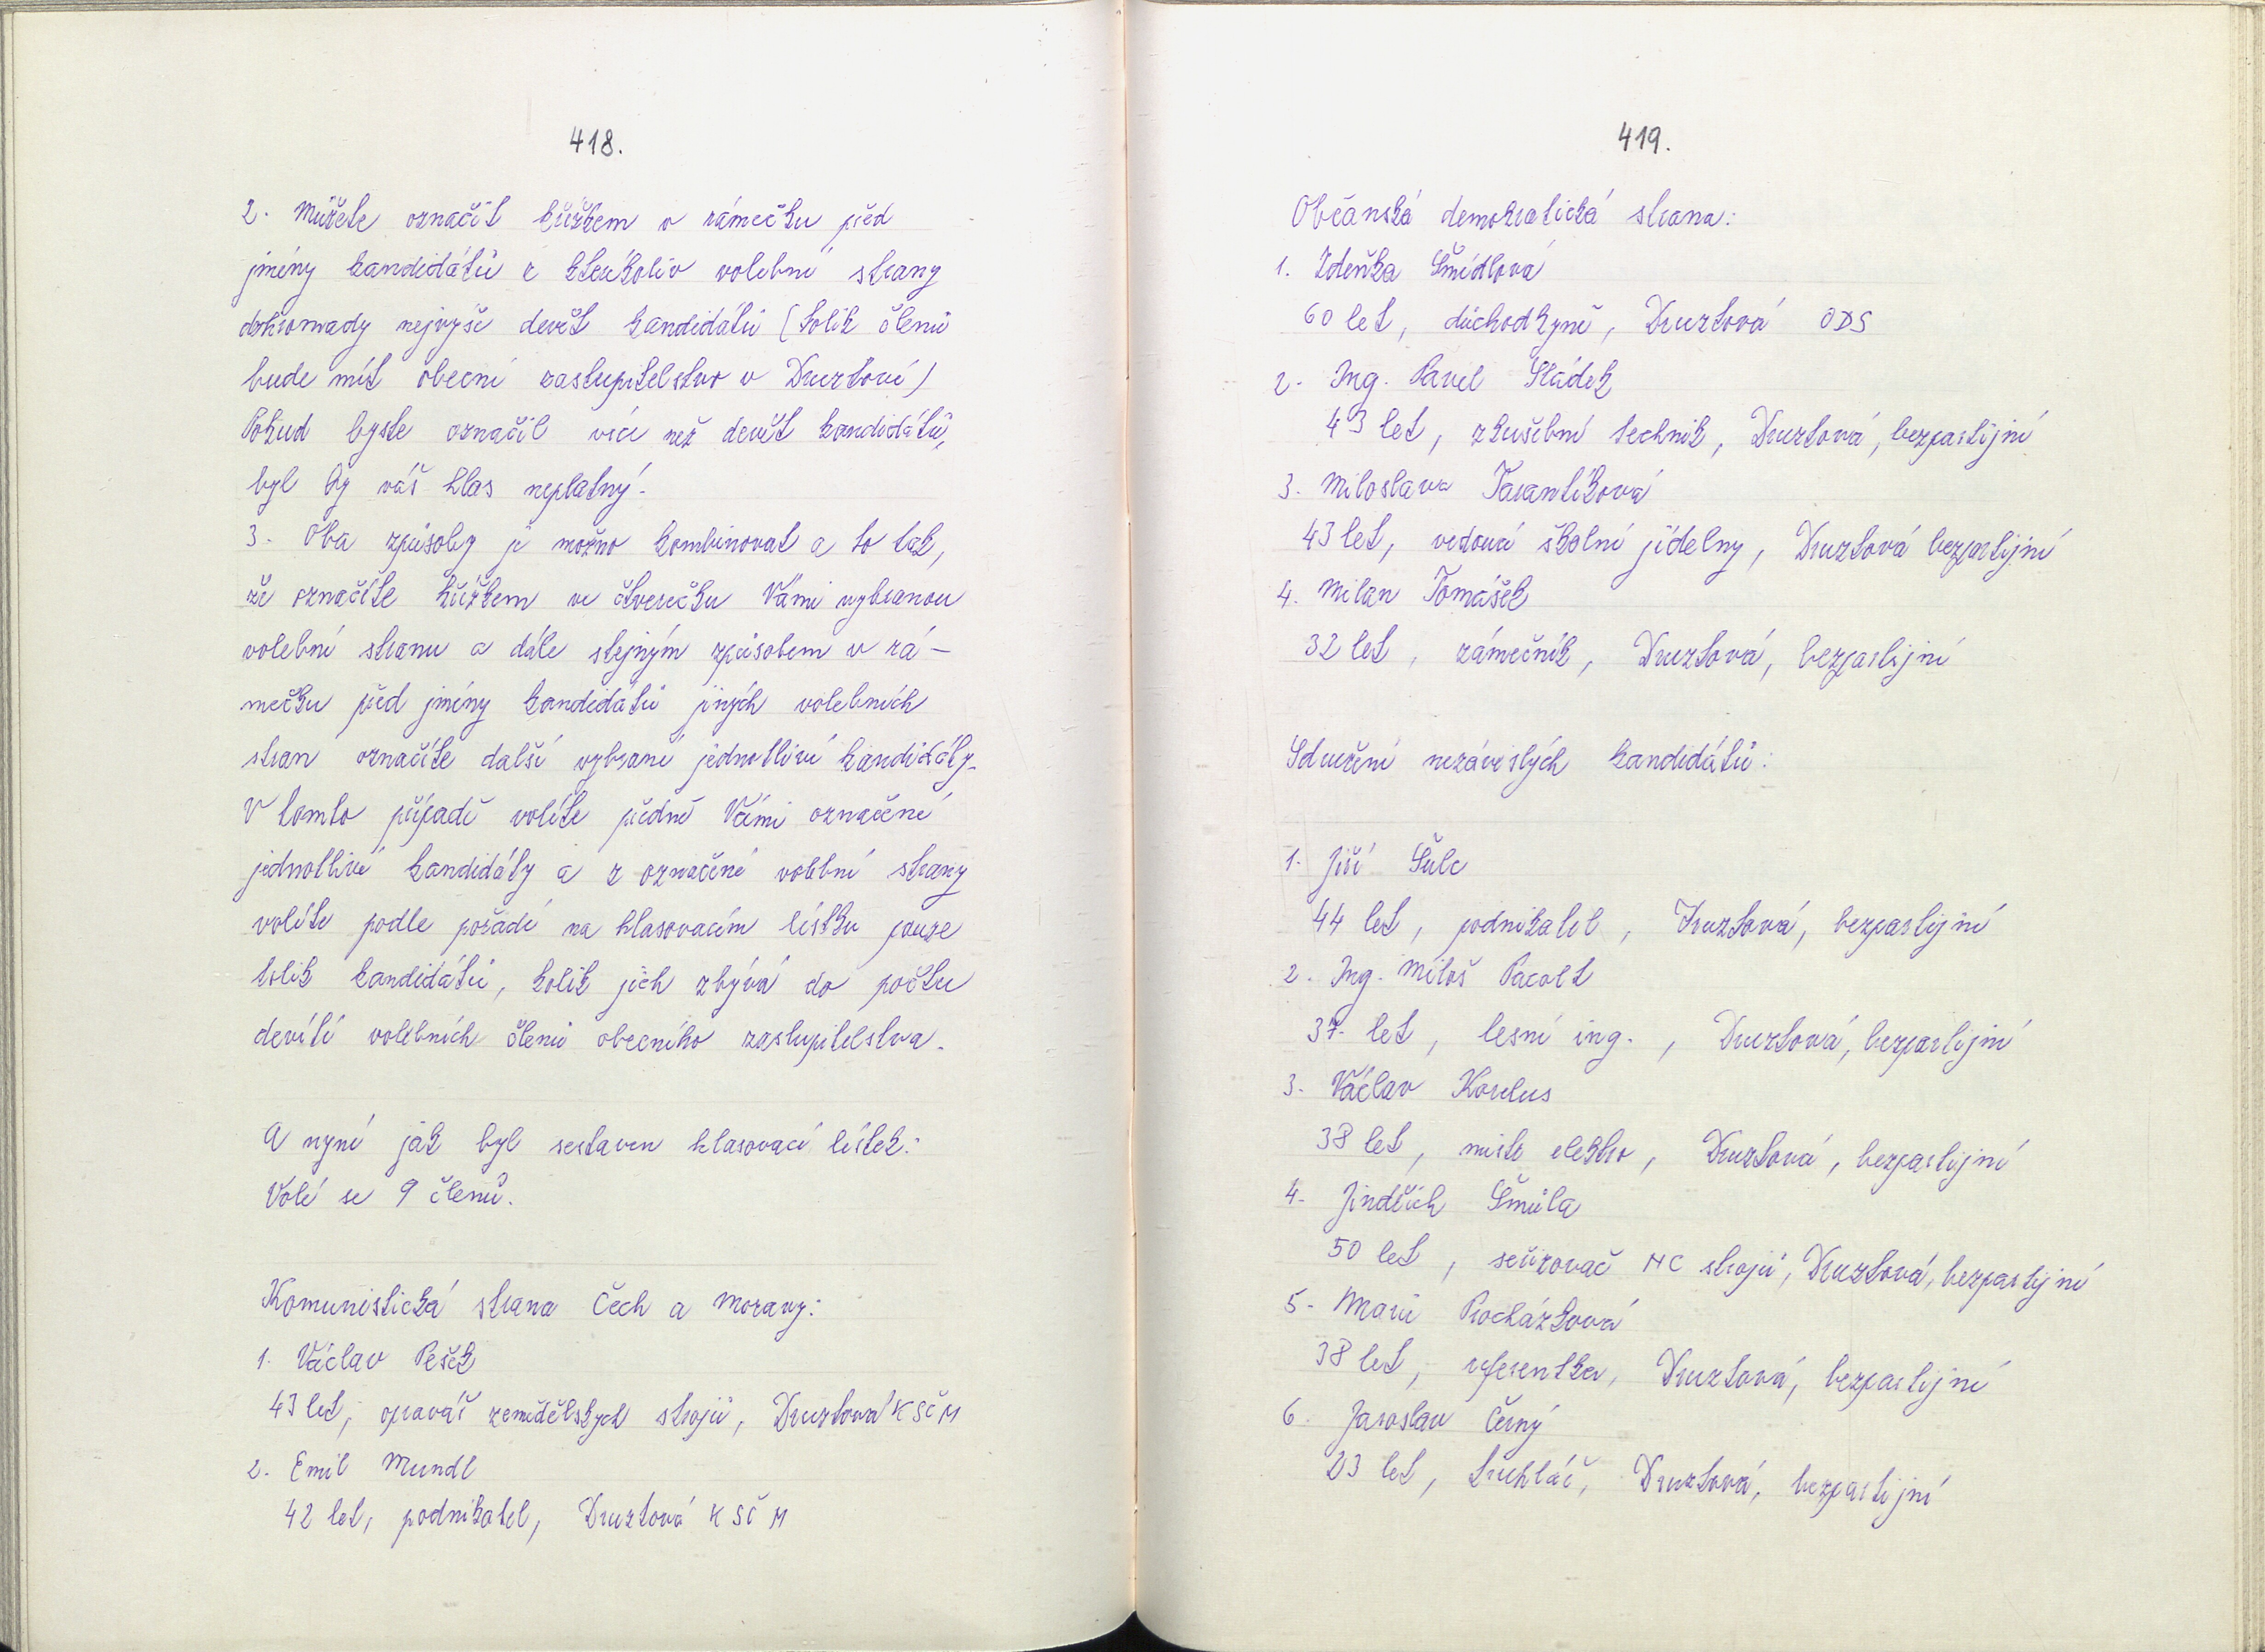 418.
2. Můžete označit křížkem v rámečku před
jmény kandidátů z kterékoliv volební strany
dohromady nejvýše devět kandidátů (tolik členů
bude mít obecní zastupitelstvo v Druztové)
Pokud byste označil více než devět kandidátů,
byl by váš hlas neplatný.
3. Oba způsoby je možno kombinovat a to tak,
že označíte křížkem ve čtverečku Vámi vybranou
volební stranu a dále stejným způsobem v rá-
mečku před jmény kandidátů jiných volebních
stran označíte další vybrané jednotlivé kandidáty.
V tomto případě volíte předně Vámi označené
jednotlivé kandidáty a z označené volební strany
volíte podle pořadí na hlasovacím lístku pouze
tolik kandidátů, kolik jich zbývá do počtu
devíti volebních členů obecního zastupitelstva.
A nyní jak byl sestaven hlasovací lístek:
Volí se 9 členů.
Komunistická strana Čech a Moravy:
1. Václav Pešek
43 let, opravář zemědělských strojů, Druztová KSČM
2. Emil Mundl
42 let, podnikatel, Druztová KSČM
419.
Občanská demokratická strana:
1. Zdeňka Šmídlová
60 let, důchodkyně, Druztová ODS
2. Ing. Pavel Sládek
43 let, zkušební technik, Druztová, bezpartijní
3. Miloslava Tarantíková
43 let, vedoucí školní jídelny, Druztová bezpartijní
4. Milan Tomášek
32 let, zámečník, Druztová, bezpartijní
Sdružení nezávislých kandidátů:
1. Jiří Šulc
44 let, podnikatel, Druztová, bezpartijní
2. Ing. Miloš Pacolt
37 let, lesní ing., Druztová, bezpartijní
3. Václav Korelus
38 let, mistr elektro, Druztová, bezpartijní
4. Jindřich Šmůla
50 let, seřizovač NC strojů, Druztová, bezpartijní
5. Marie Procházková
38 let, referentka, Druztová, bezpartijní
6. Jaroslav Černý
23 let, truhlář, Druztová, bezpartijní